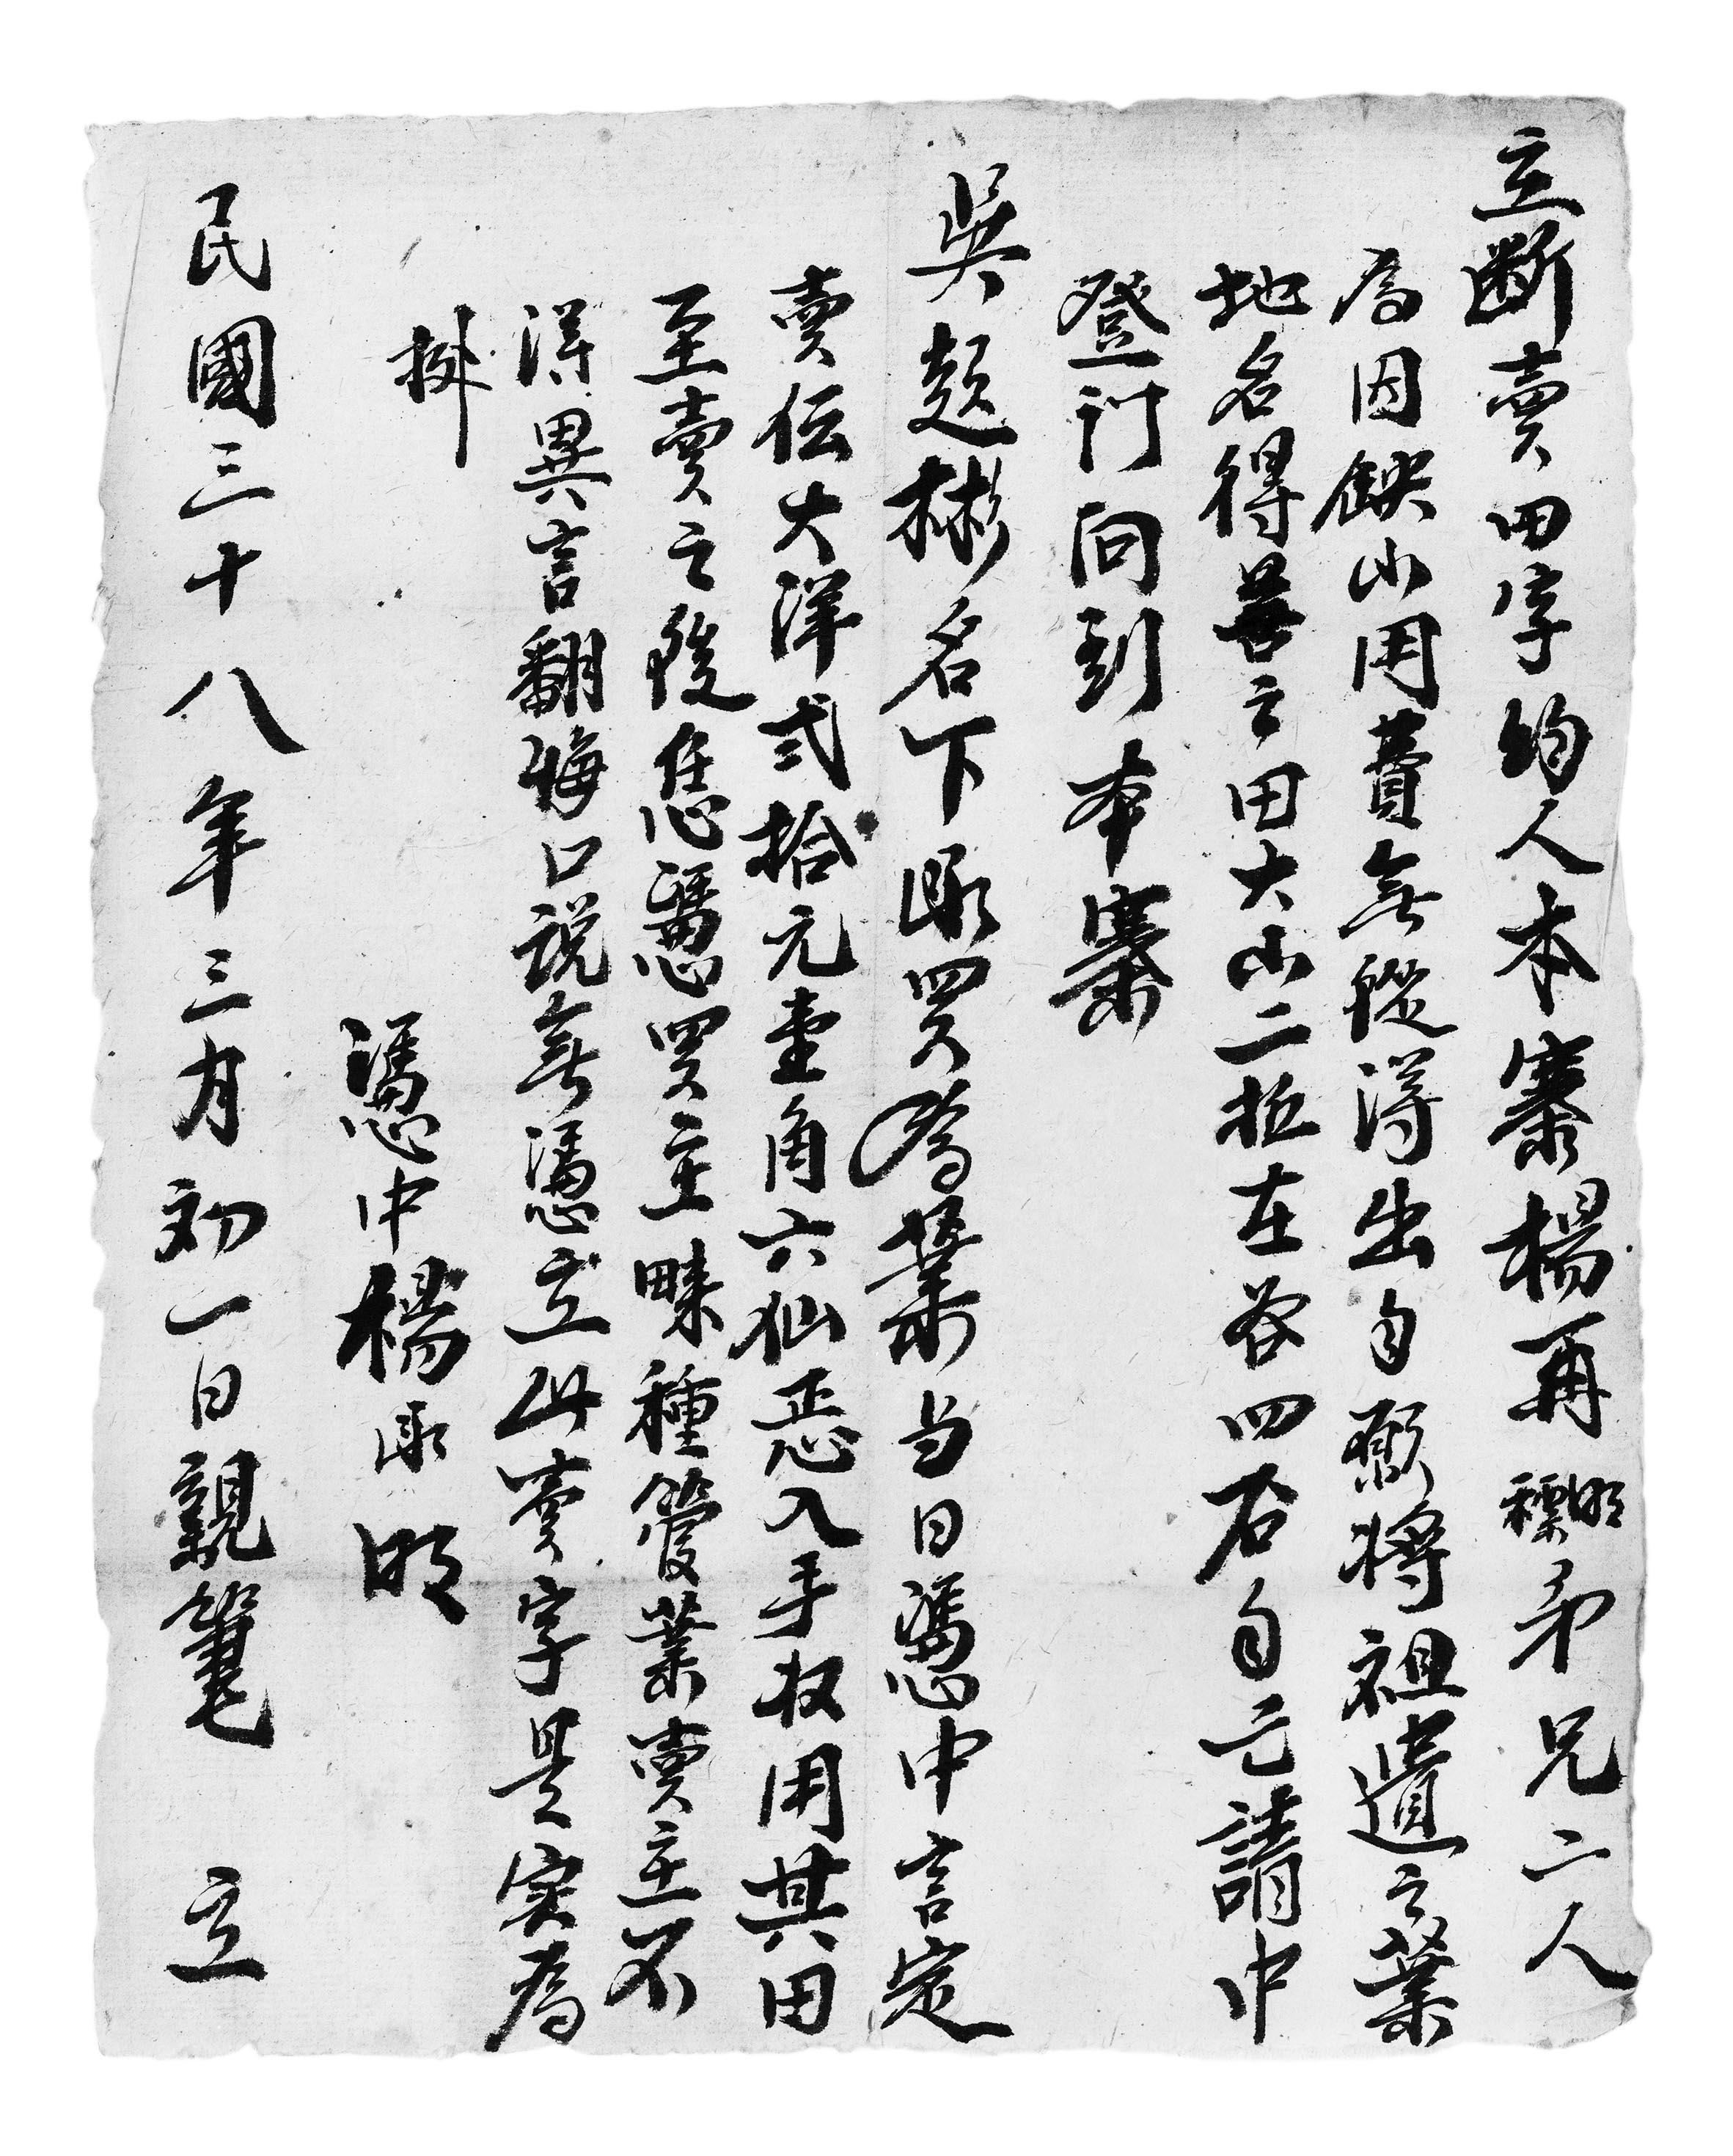 立斷賣田字約人本寨楊再明標弟兄二人
為因缺少用費無從得出自願將祖遺之業
地名得苗之田大小二坵在谷四石自己請中
登门问到本寨
吳起彬名下承買為業当日憑中言定
賣伝大洋弐拾元壹角六仙㤫入手收用其田
至賣之後恁憑買主畊種管業賣主不
淂異言翻悔口説無憑立此賣字是実為
㨿
憑中楊承明
民國三十八年三月初一日親筆 立